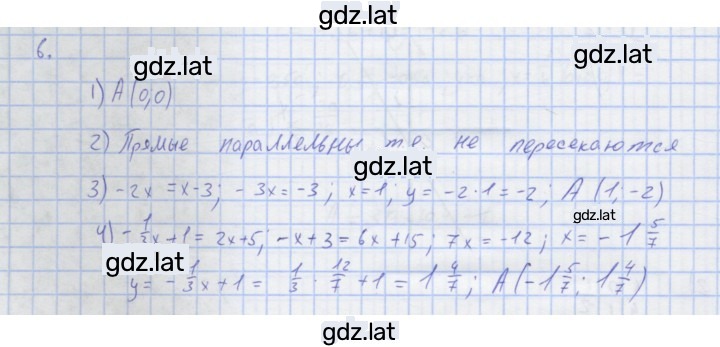 gdz.lat
6.
gdz.lat
gdz.lat
1) A(0;0)
2) Прямые параллельны т.е. не пересекаются
gdz.lat
3) -2x = x-3; -3x = -3; x = 1; y = -2·1 = -2; A(1; -2)
gdz.lat
4) -1/3x+1 = 2x+5; -x+3 = 6x+15; 7x = -12; x = -1 5/7
gdz.lat
y = -1/3x+1 = 1/3 · 12/7 + 1 = 1 4/7; A(-1 5/7; 1 4/7)
gdz.lat